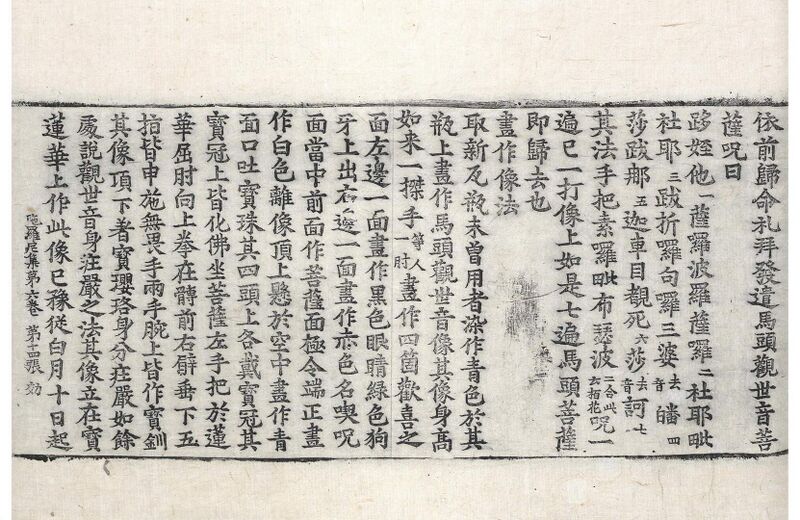 依前歸命礼拜發遣馬頭觀世音菩
薩呪曰
跢姪他一薩羅波羅薩羅二杜耶毗
社耶三跋折囉句囉三婆去音皤四
莎跋那五迦車目覩死六莎去音訶七
其法手把素囉毗布瑟波二合此云栢花呪一
遍已一打像上如是七遍馬頭菩薩
即歸去也
畫作像法
取新瓦瓶未曾用者染作青色於其
瓶上畫作馬頭觀世音像其像身高
如來一搩手等人一肘畫作四箇歡喜之
面左邊一面畫作黑色眼睛綠色狗
牙上出右邊一面畫作赤色名喫呪
面當中前面作菩薩面極令端正畫
作白色離像頂上懸於空中畫作青
面口吐寶珠其四頭上各戴寶冠其
寶冠上皆化佛坐菩薩左手把於蓮
華屈肘向上拳在髆前右臂垂下五
指皆申施無畏手兩手腕上皆作寶釧
其像頂下著寶瓔珞身分莊嚴如餘
處說觀世音身莊嚴之法其像立在寶
蓮華上作此像已豫從白月十日起
陁羅尼集第六卷 第十四張 効